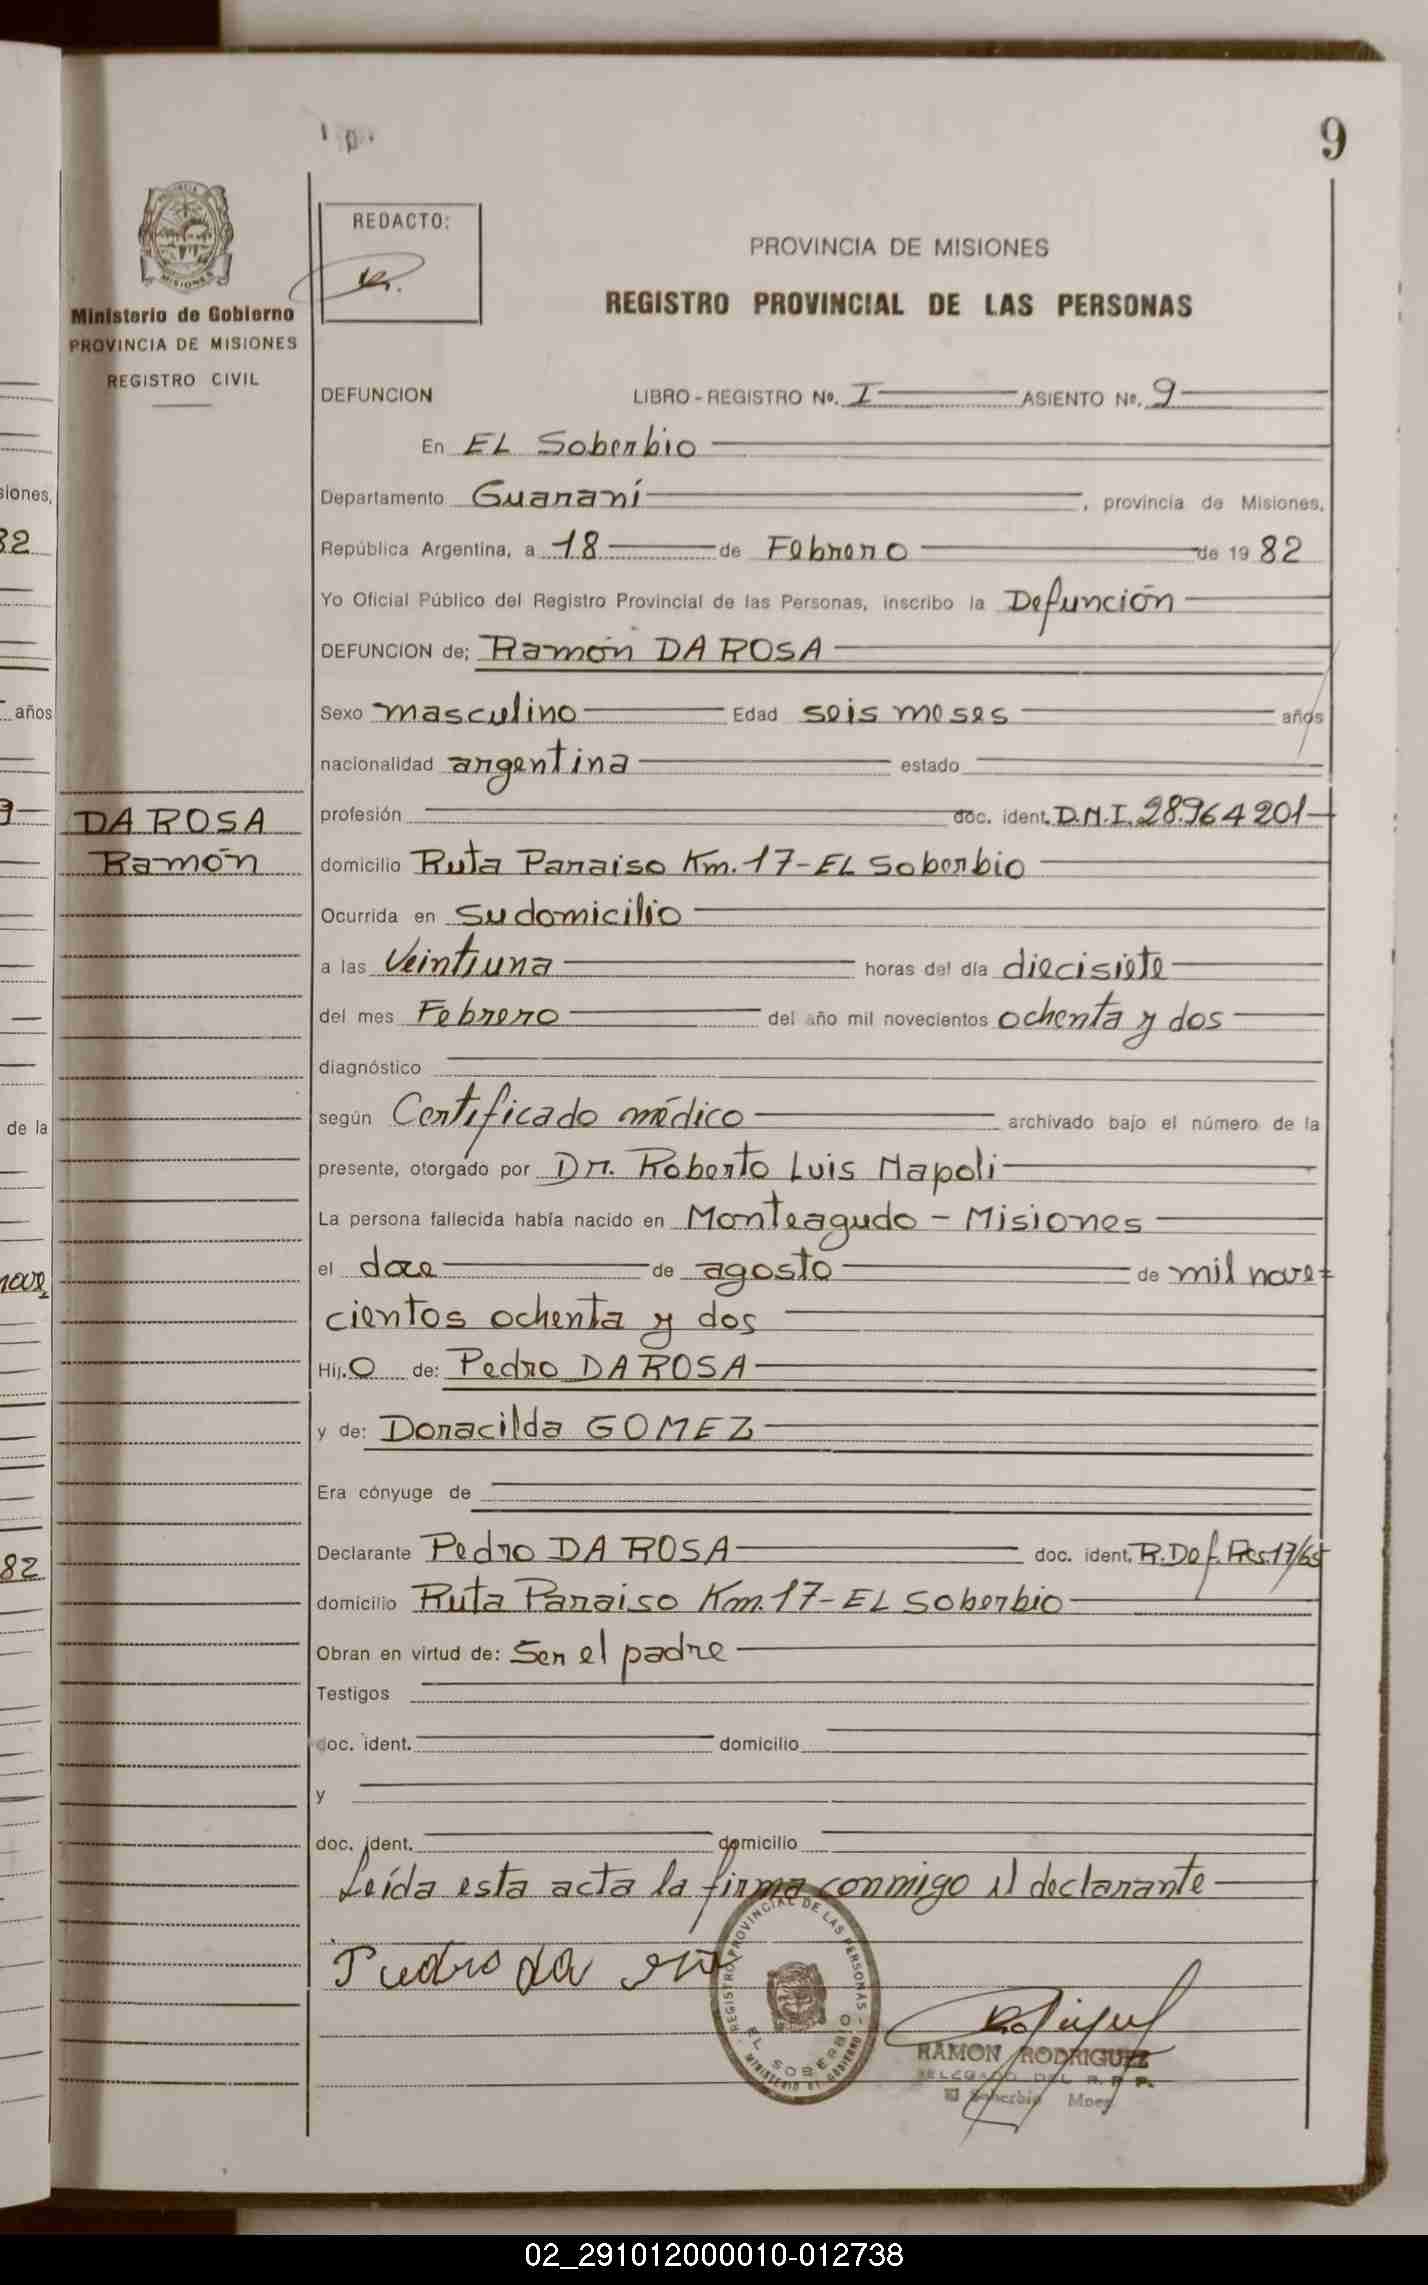 9
REDACTO:
PROVINCIA DE MISIONES
REGISTRO PROVINCIAL DE LAS PERSONAS
MISIONES
Ministerio de Gobierno
PROVINCIA DE MISIONES
REGISTRO CIVIL
DEFUNCION LIBRO - REGISTRO Nº. I ASIENTO Nº. 9
En EL Soberbio
Departamento Guaraní, provincia de Misiones,
República Argentina, a 18 de Febrero de 1982
Yo Oficial Público del Registro Provincial de las Personas, inscribo la Defunción
DEFUNCION de; Ramón DA ROSA
Sexo masculino Edad seis meses años
nacionalidad argentina estado
profesión doc. ident. D.N.I. 28.964201
DA ROSA
Ramón
domicilio Ruta Paraiso Km. 17-EL Soberbio
Ocurrida en su domicilio
a las Veintiuna horas del día diecisiete
del mes Febrero del año mil novecientos ochenta y dos
diagnóstico
según Certificado médico archivado bajo el número de la
presente, otorgado por Dr. Roberto Luis Napoli
La persona fallecida había nacido en Monteagudo - Misiones
el doce de agosto de mil nove
cientos ochenta y dos
Hij.o de: Pedro DA ROSA
y de: Doracilda GOMEZ
Era cónyuge de
Declarante Pedro DA ROSA doc. ident. R.Def. Res.17/65
domicilio Ruta Paraiso Km. 17-EL Soberbio
Obran en virtud de: Ser el padre
Testigos
doc. ident. domicilio
y
doc. ident. domicilio
Leída esta acta la firma conmigo el declarante
Pedro da
REGISTRO PROVINCIAL DE LAS PERSONAS
EL SOBERBIO
MINISTERIO DE GOBIERNO
RAMON RODRIGUEZ
DELEGADO DEL R. P. P.
El Soberbio Mnes.
siones,
32
años
de la
nove
82
02_291012000010-012738